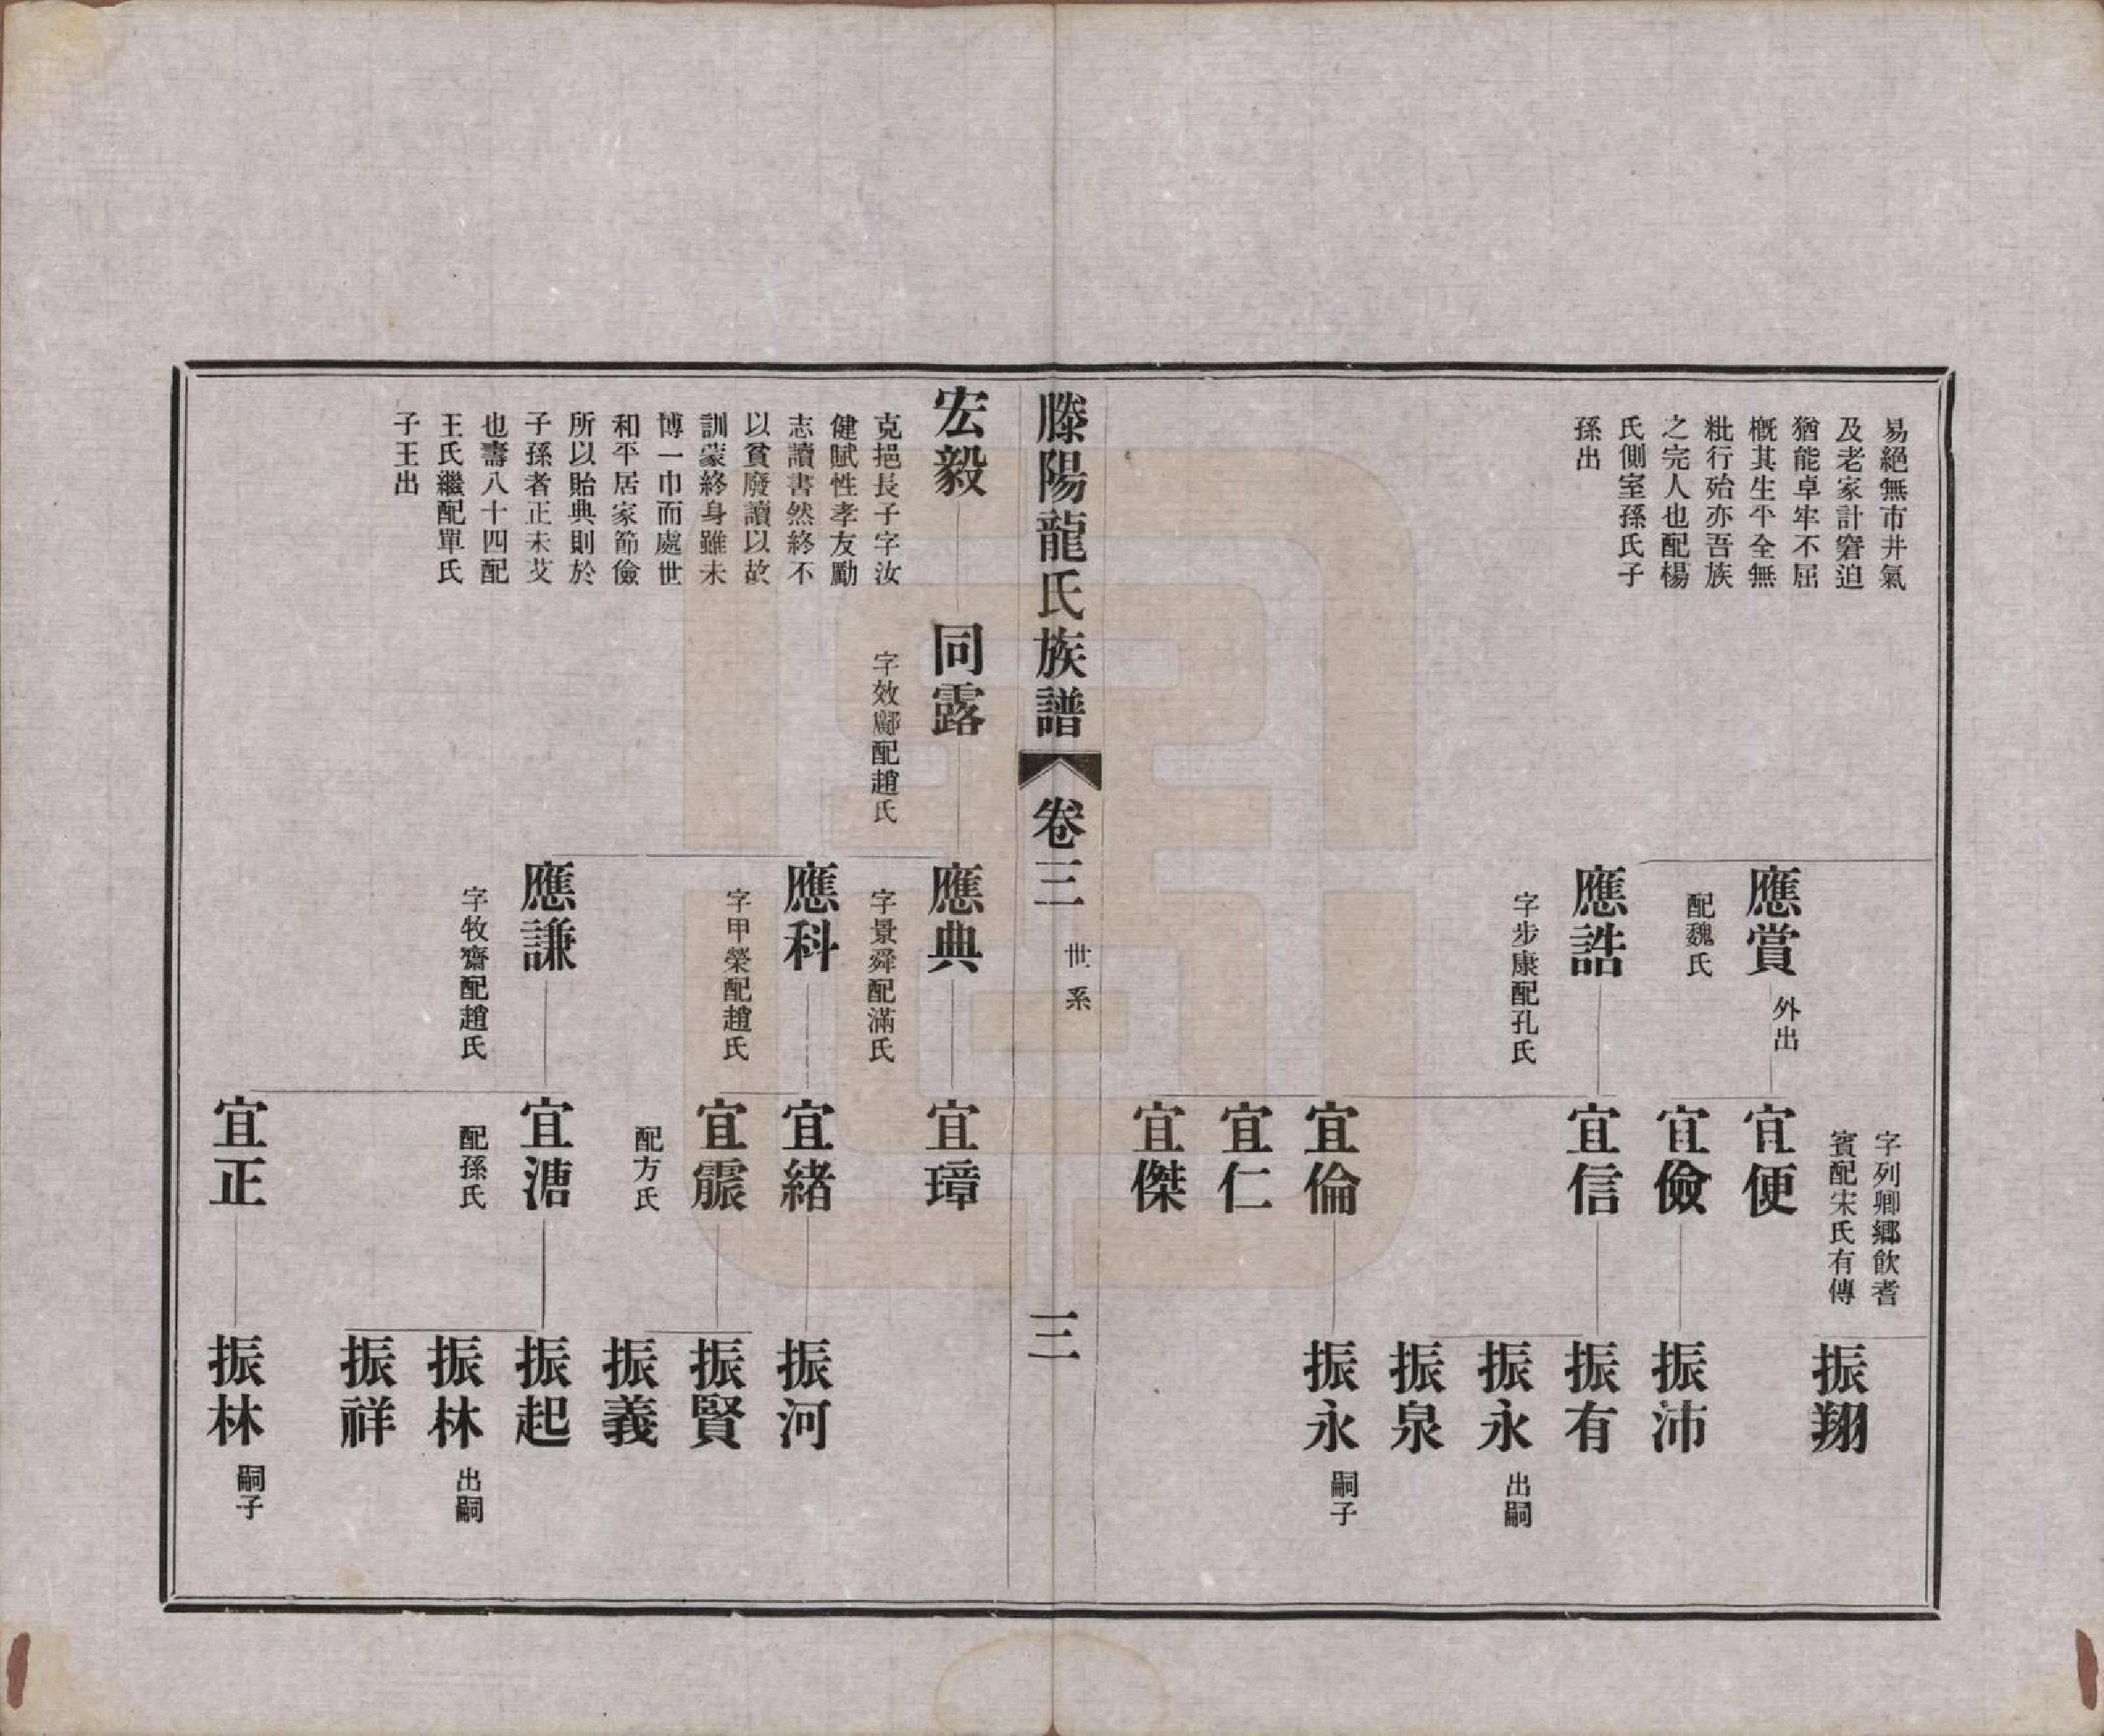 易絕無市井氣
及老家計窘迫
猶能卓牢不屈
概其生平全無
粃行殆亦吾族
之完人也配楊
氏側室孫氏子
孫出
應賞
外出
配魏氏
應誥
字步康配孔氏
字列卿鄉飲耆
賓配宋氏有傳
宜便
宜儉
宜信
宜倫
宜仁
宜傑
振翔
振沛
振有
振永
出嗣
振泉
振永
嗣子
滕陽龍氏族譜
卷三
世系
三
宏毅
克挹長子字汝
健賦性孝友勵
志讀書然終不
以貧廢讀以故
訓蒙終身雖未
博一巾而處世
和平居家節儉
所以貽典則於
子孫者正未艾
也壽八十四配
王氏繼配單氏
子王出
同露
字效鄺配趙氏
應典
字景舜配滿氏
應科
字甲榮配趙氏
應謙
字牧齋配趙氏
宜璋
宜緒
宜震
配方氏
宜溏
配孫氏
宜正
振河
振賢
振義
振起
振林
出嗣
振祥
振林
嗣子